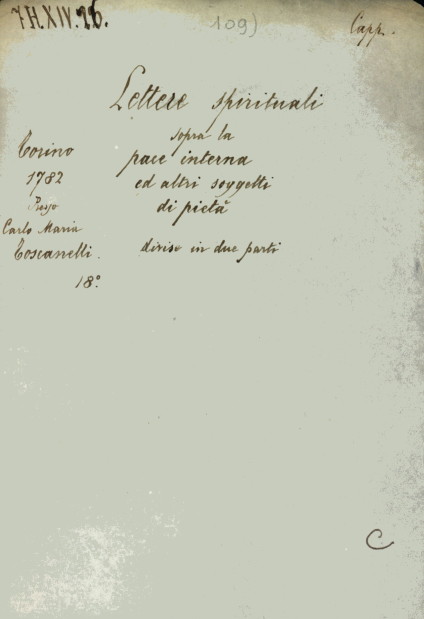 7.H.XIV.26.
109)
Capp.
Lettere spirituali
sopra la
pace interna
ed altri soggetti
di pietà
divise in due parti
Torino
1782
Presso
Carlo Maria
Toscanelli.
18°.
C